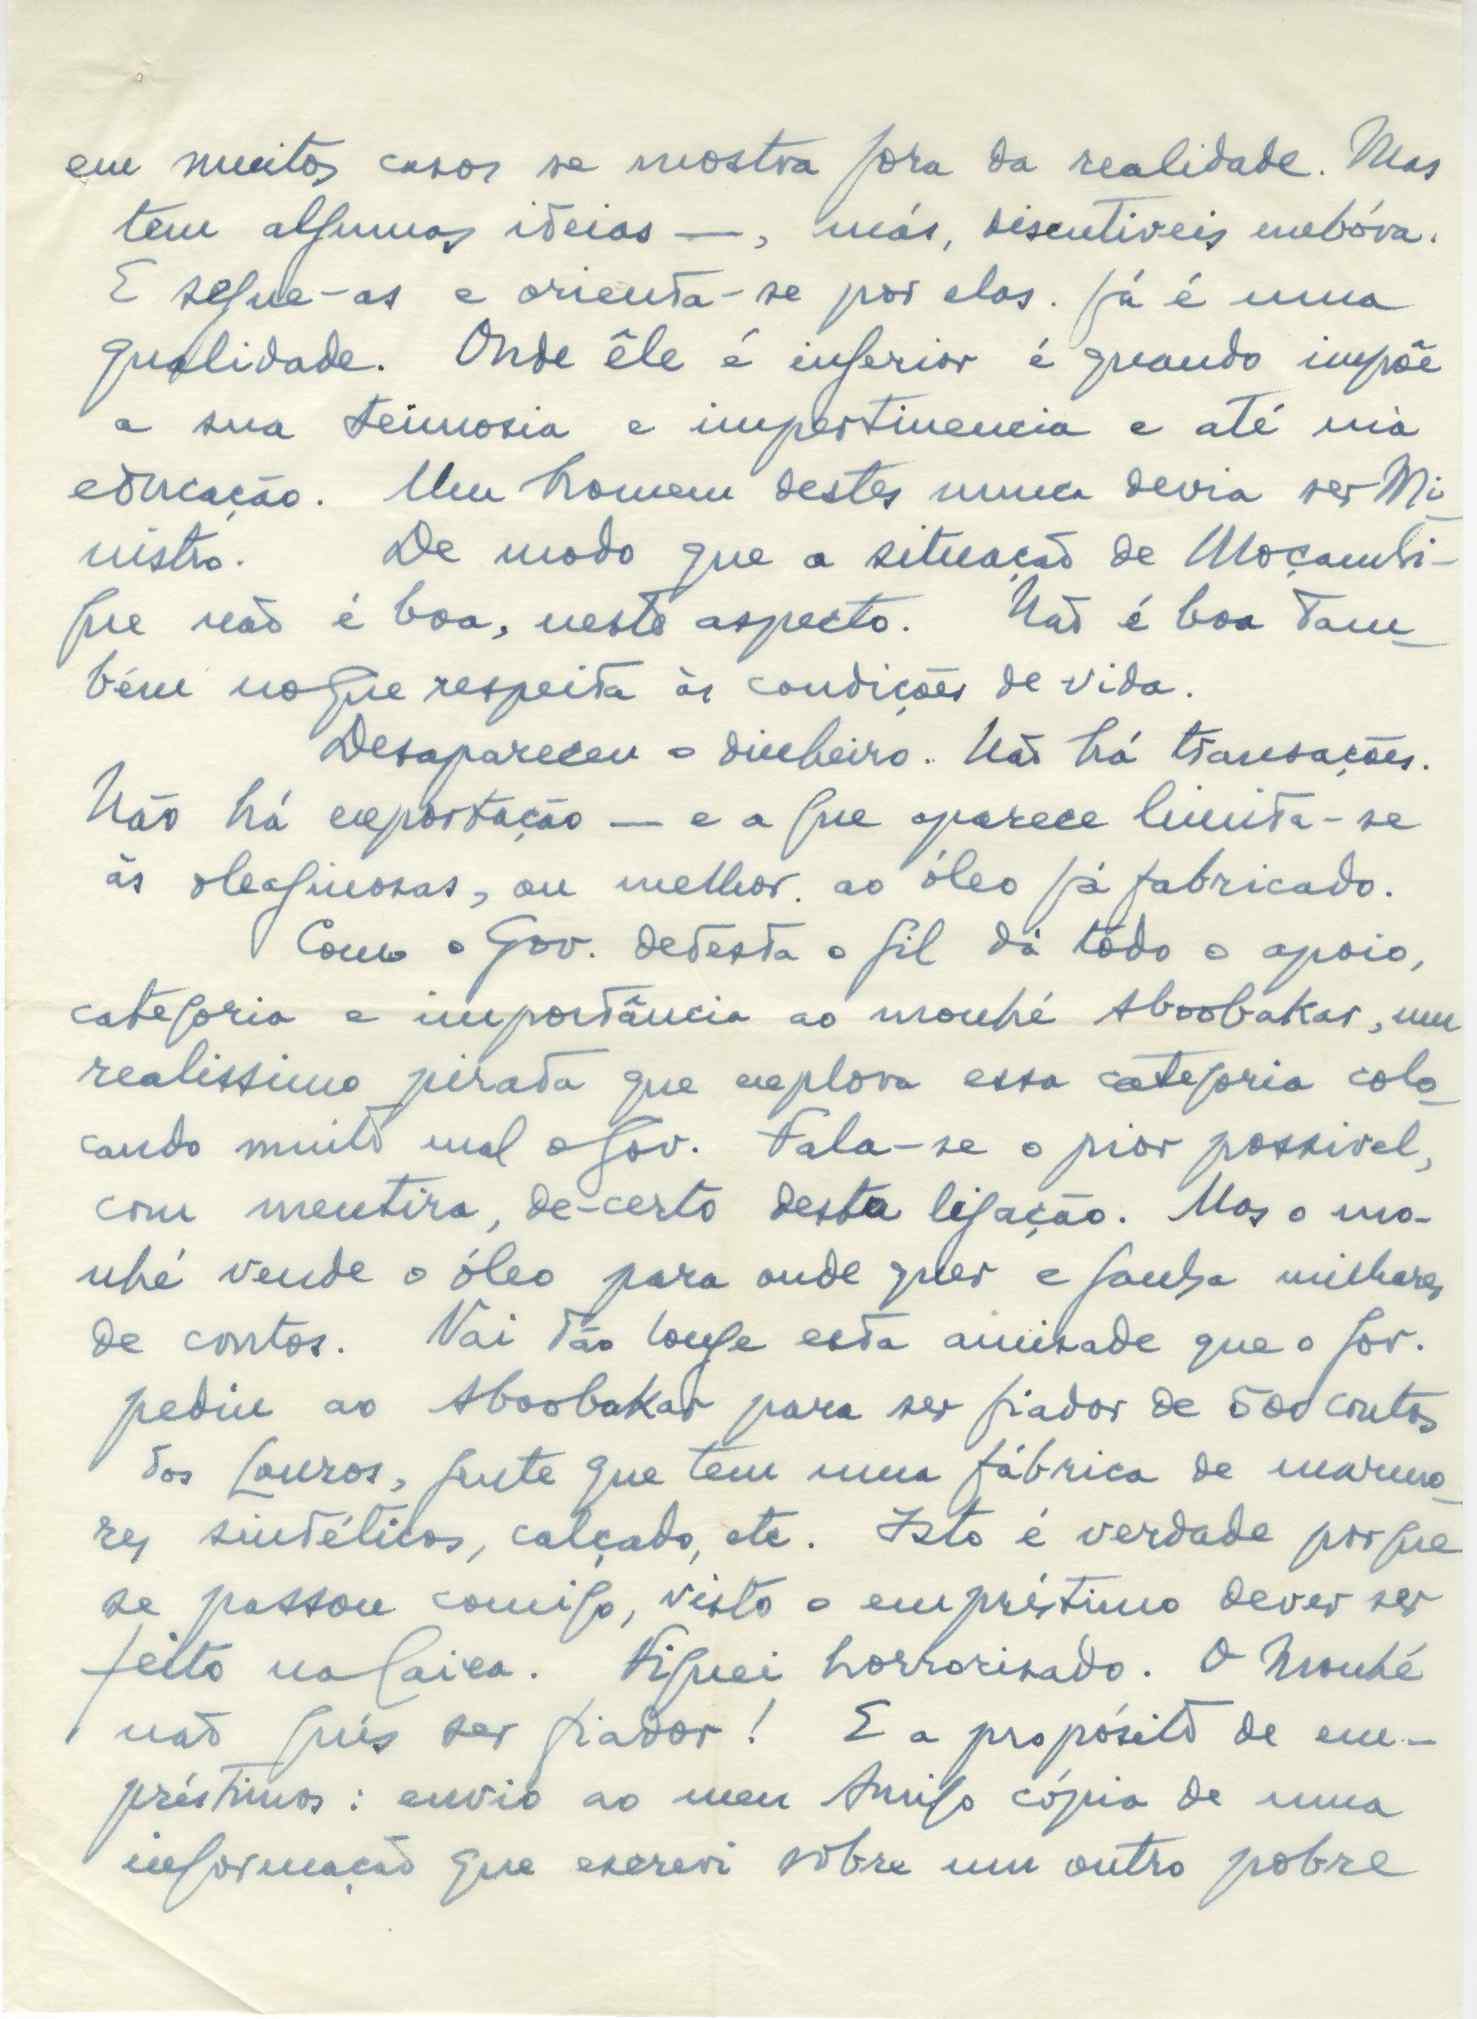 em muitos casos se mostra fora da realidade. Mas
tem algumas ideias —, más, discutiveis embóra.
E segue-as e orienta-se por elas. Já é uma
qualidade. Onde êle é inferior é quando impõe
a sua teimosia e impertinencia e até má
educação. Um homem destes nunca devia ser Mi-
nistro. De modo que a situação de Moçambi-
que não é boa, neste aspecto. Não é boa tam-
bém no que respeita às condições de vida.
Desapareceu o dinheiro. Não há transações.
Não há exportação — e a que aparece limita-se
às oleaginosas, ou melhor. ao óleo já fabricado.
Como o Gov. detesta o Gil dá tôdo o apoio,
categoria e importância ao monhé Aboobakar, um
realissimo pirata que explora essa categoria colo-
cando muito mal o Gov. Fala-se o pior possivel,
com mentira, de-certo desta ligação. Mas o mo-
nhé vende o óleo para onde quer e ganha milhares
de contos. Vai tão longe esta amisade que o Gov.
pediu ao Aboobakar para ser fiador de 500 contos
dos Lauros, gente que tem uma fábrica de marmo-
res sintéticos, calçado, etc. Isto é verdade porque
se passou comigo, visto o empréstimo dever ser
feito na Caixa. Fiquei horrorisado. O Monhé
não quís ser fiador! E a propósito de em-
préstimos: envio ao meu Amigo cópia de uma
informação que escrevi sôbre um outro pobre